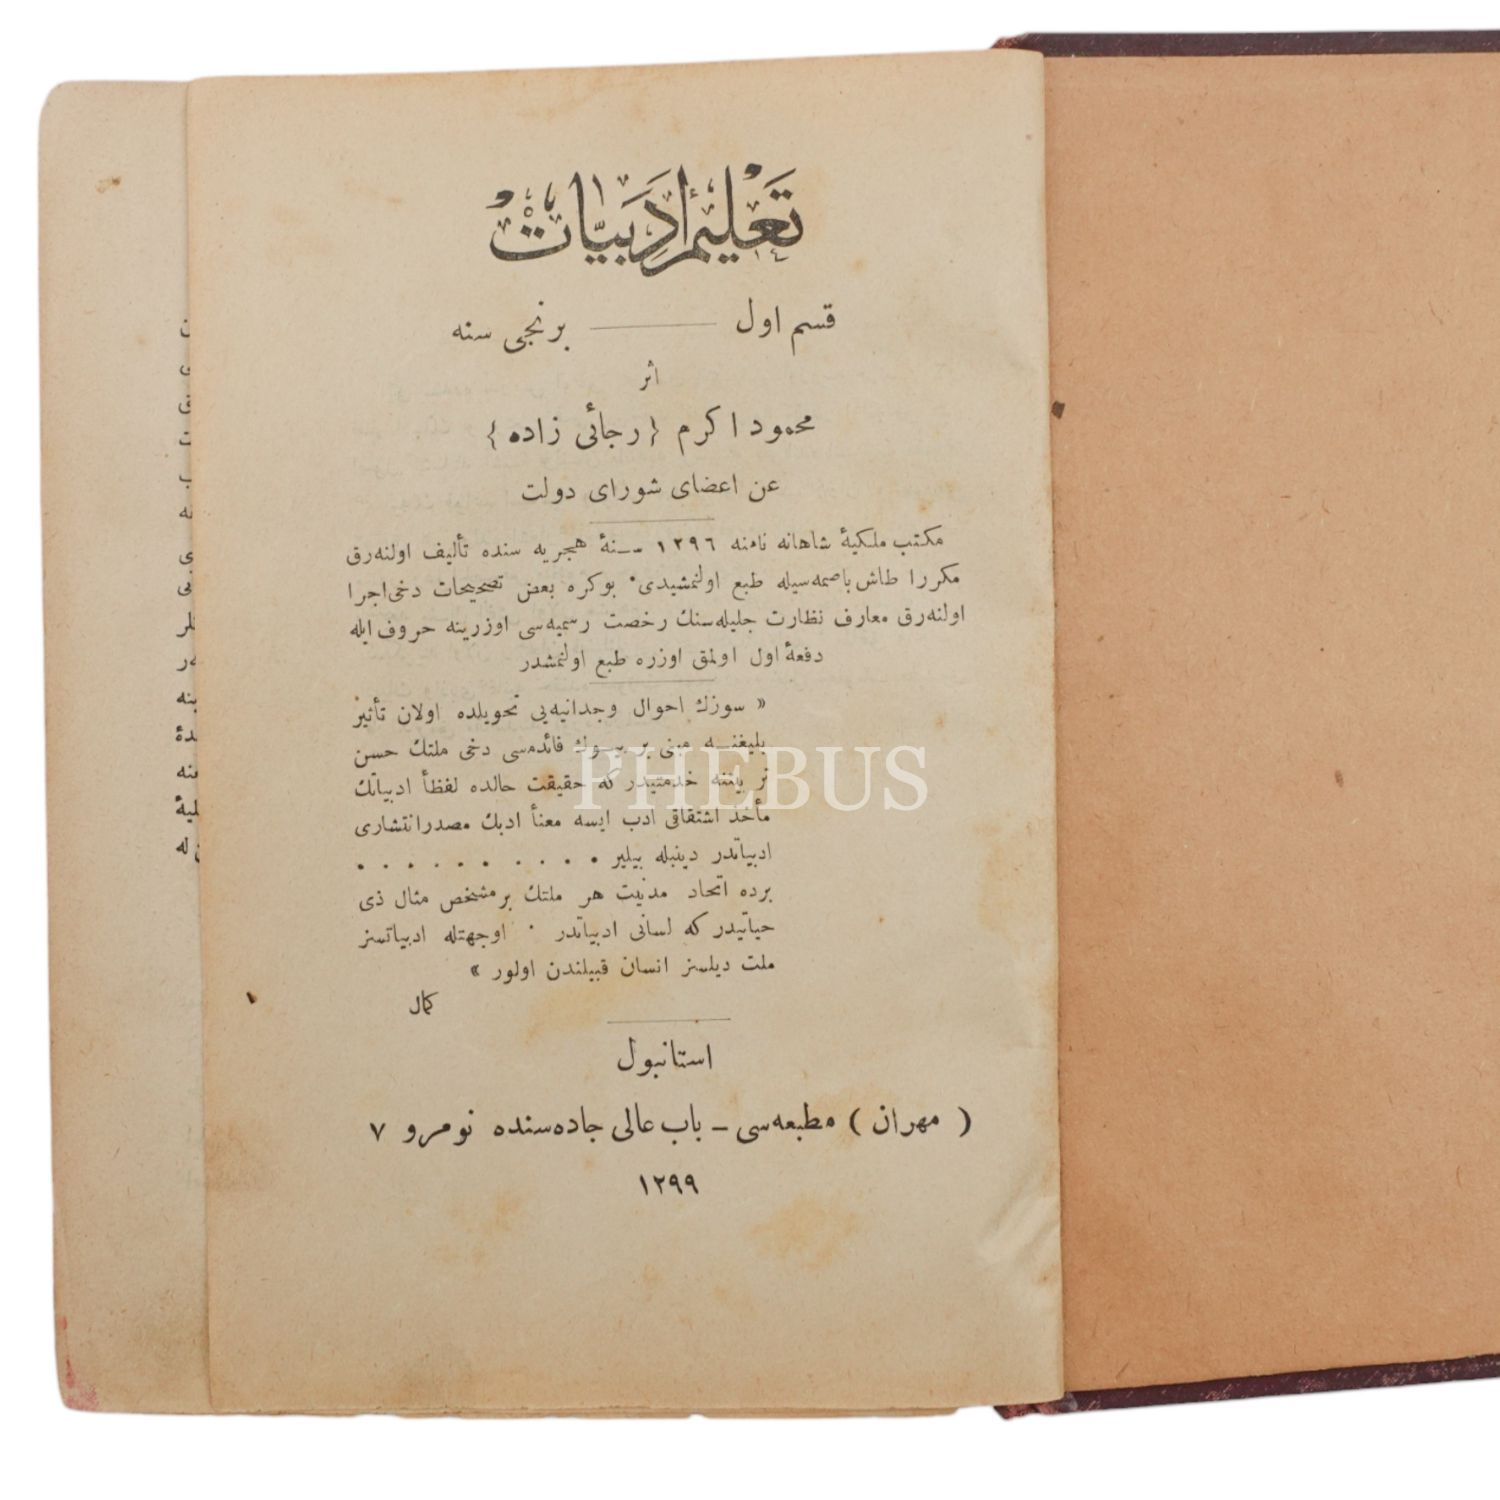 تَعْليمِ أدَبيّات
قسم اول —— برنجی سنه
اثر
محمود اکرم {رجائی زاده}
عن اعضای شورای دولت
مکتب ملکیهٔ شاهانه نامنه ١٢٩٦ سنهٔ هجریه سنده تألیف اولنه‌رق
مکررا طاش باصمه‌سیله طبع اولنمشیدی٠ بوکره بعض تصحیحات دخی اجرا
اولنه‌رق معارف نظارت جلیله‌سنك رخصت رسمیه‌سی اوزرینه حروف ایله
دفعهٔ اول اولمق اوزره طبع اولنمشدر
« سوزك احوال وجدانیه‌یی تحویلده اولان تأثیر
بلیغنه مبنی بر بیوك فائده‌سی دخی ملتك حسن
تربیتنه خدمتیدر که حقیقت حالده لفظاً ادبیاتك
مأخذ اشتقاقی ادب ایسه معناً ادبك مصدر انتشاری
ادبیاتدر دینیله بیلیر . . . . . . . . . .
برده اتحاد مدنیت هر ملتك بر مشخص مثال ذی
حیاتیدر که لسانی ادبیاتدر ٠ اوجهتله ادبیاتسز
ملت دیلسز انسان قبیلندن اولور »
کمال
استانبول
( مهران ) مطبعه‌سی – باب عالی جاده‌سنده نومرو ٧
١٢٩٩
PHEBUS